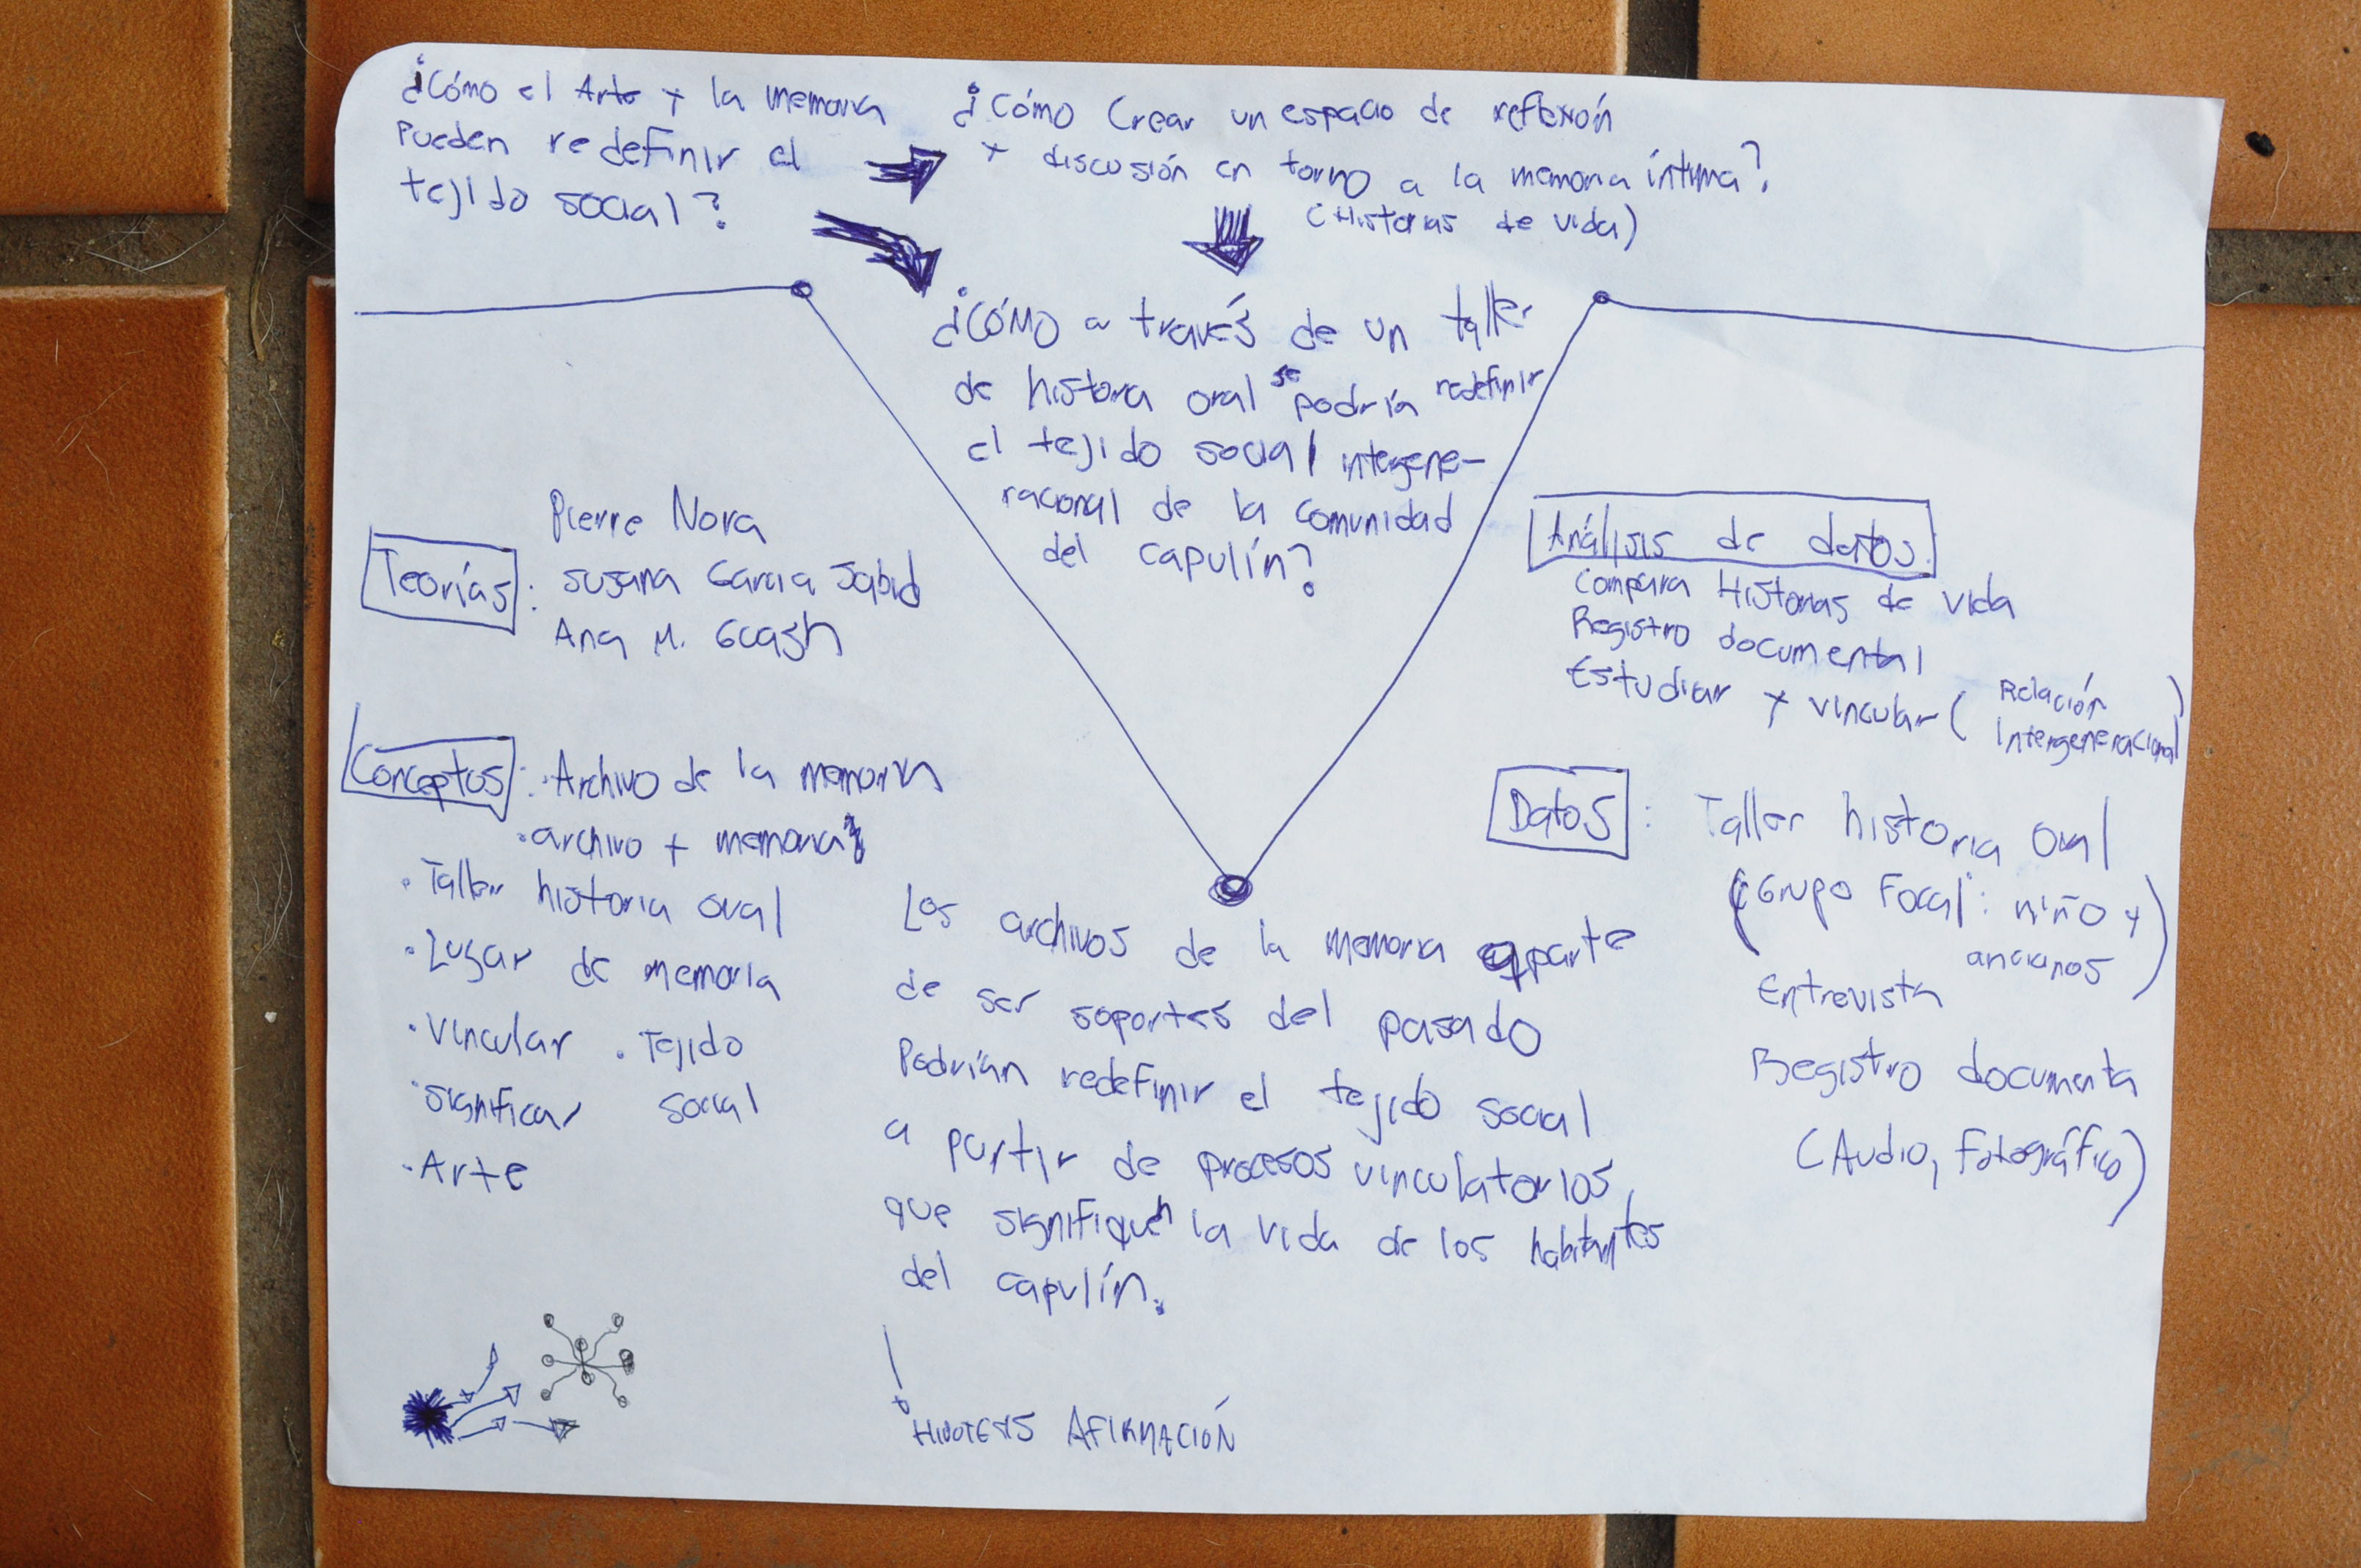 ¿Cómo el Arte y la memoria
pueden redefinir el
tejido social?
¿Cómo Crear un espacio de reflexón
y discusión en torno a la memoria íntima?
(Historias de vida)
¿Cómo a través de un taller
de historia oral se podría redefinir
el tejido social intergene-
racional de la comunidad
del capulín?
Pierre Nora
Teorías: Susana Garcia
Ana M.
Conceptos: · Archivo de la memoria
· archivo + memoria
· Taller historia oral
· Lugar de memoria
· vincular · Tejido
· significar social
· Arte
Análisis de datos.
Compara Historias de vida
Registro documental
Estudiar y vincular (Relación
Intergeneracional)
Datos: Taller historia oral
(Grupo Focal: niño y
ancianos)
Entrevista
Registro documenta
(Audio, fotográfico)
Los archivos de la memoria aparte
de ser soportes del pasado
Podrían redefinir el tejido social
a partir de procesos vinculatorios
que signifiquen la vida de los habitantes
del capulín.
HIPOTESIS AFIRMACIÓN